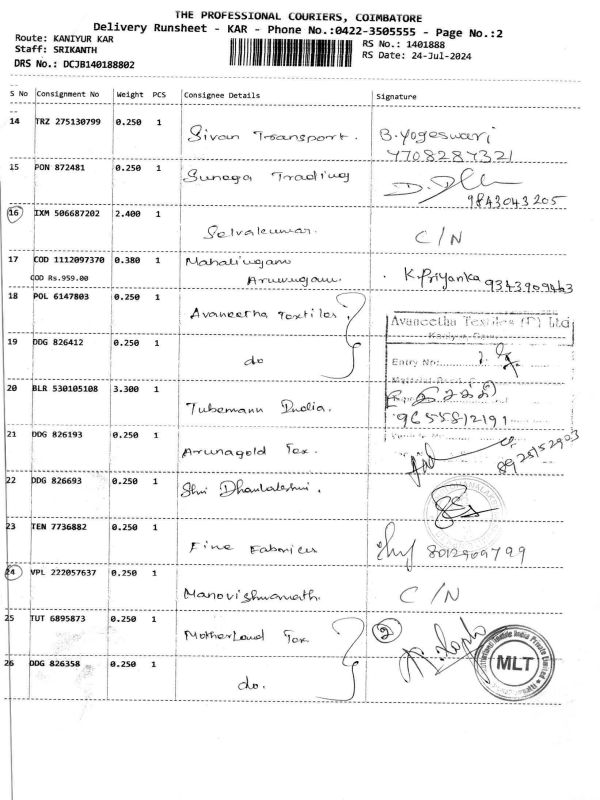 THE PROFESSIONAL COURIERS, COIMBATORE
Delivery Runsheet - KAR - Phone No.:0422-3505555 - Page No.:2
Route: KANIYUR KAR
RS No.: 1401888
Staff: SRIKANTH
RS Date: 24-Jul-2024
DRS No.: DCJB140188802
S No Consignment No Weight PCS Consignee Details Signature
14 TRZ 275130799 0.250 1 Sivan Transport. B.Yogeswari
7708287321
15 PON 872481 0.250 1 Sunega Trading
9843043205
16 IXM 506687202 2.400 1 Selvakumar. C/N
17 COD 1112097370 0.380 1 Mahalingam
COD Rs.959.00 Arumugam. K.Priyanka 9343909443
18 POL 6147803 0.250 1 Avaneetha Textiles
Avaneetha Textiles (P) Ltd
19 DDG 826412 0.250 1 do
Entry No:
20 BLR 530105108 3.300 1 Tubemann India.
9655812191
21 DDG 826193 0.250 1 Arunagold Tex. 8925152903
22 DDG 826693 0.250 1 Shri Dhanalakshmi.
23 TEN 7736882 0.250 1 Fine Fabrics 8012909799
24 VPL 222057637 0.250 1 Manovishwanath. C/N
25 TUT 6895873 0.250 1 Motherland Tex 2
MLT
26 DDG 826358 0.250 1 do.